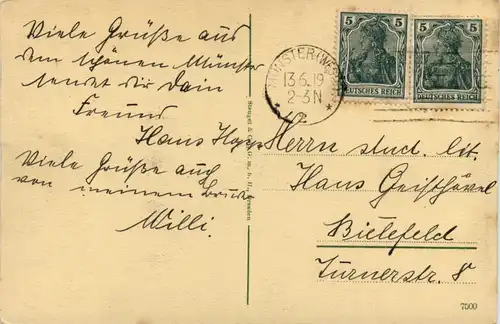 Viele Grüße aus
dem schönen Münster
sendet dir dein
Freund
Hans
Viele Grüße auch
von meinem
Willi.
Stengel & Co., G. m. b. H., Dresden
5 5
DEUTSCHES REICH
5 5
DEUTSCHES REICH
MÜNSTER (WESTF.)
13.6.19
2-3N
Herrn stud. lit.
Hans Geisthövel
Bielefeld
Turnerstr. 8
7500